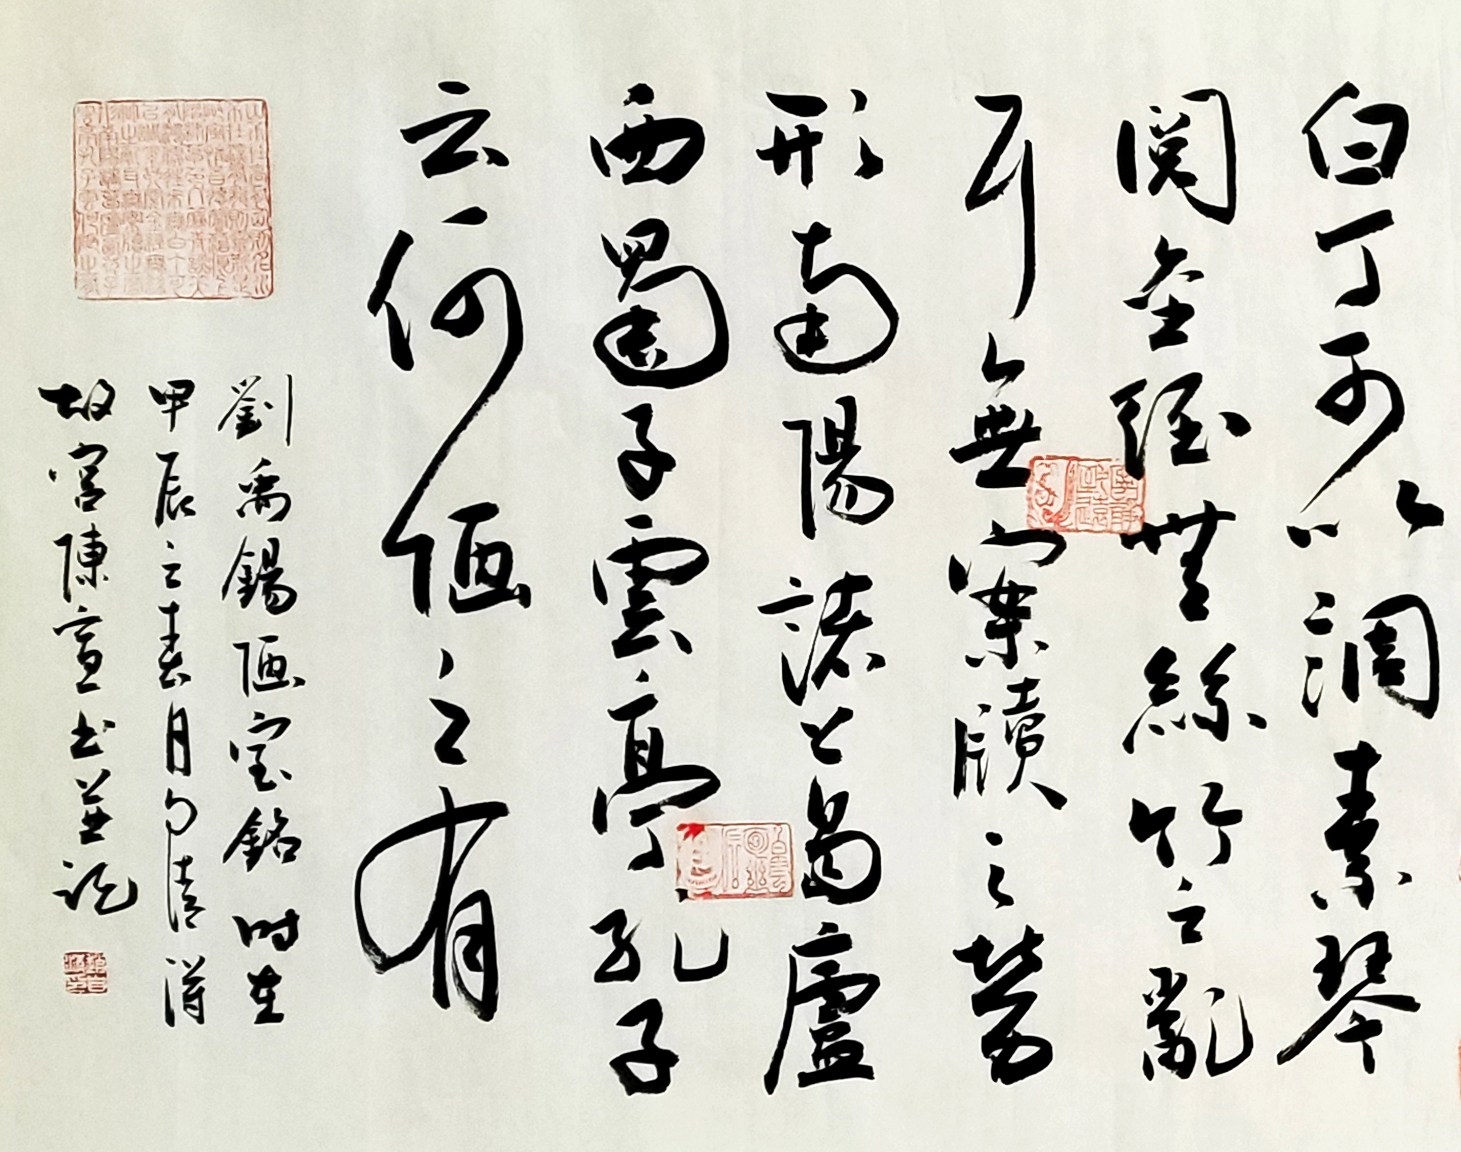 白丁可以調素琴
閱金經無絲竹之亂
耳無案牘之勞
形南陽諸葛廬
西蜀子雲亭孔子
云何陋之有
劉禹錫陋室銘時在
甲辰之春月
故宮陳宣書並記